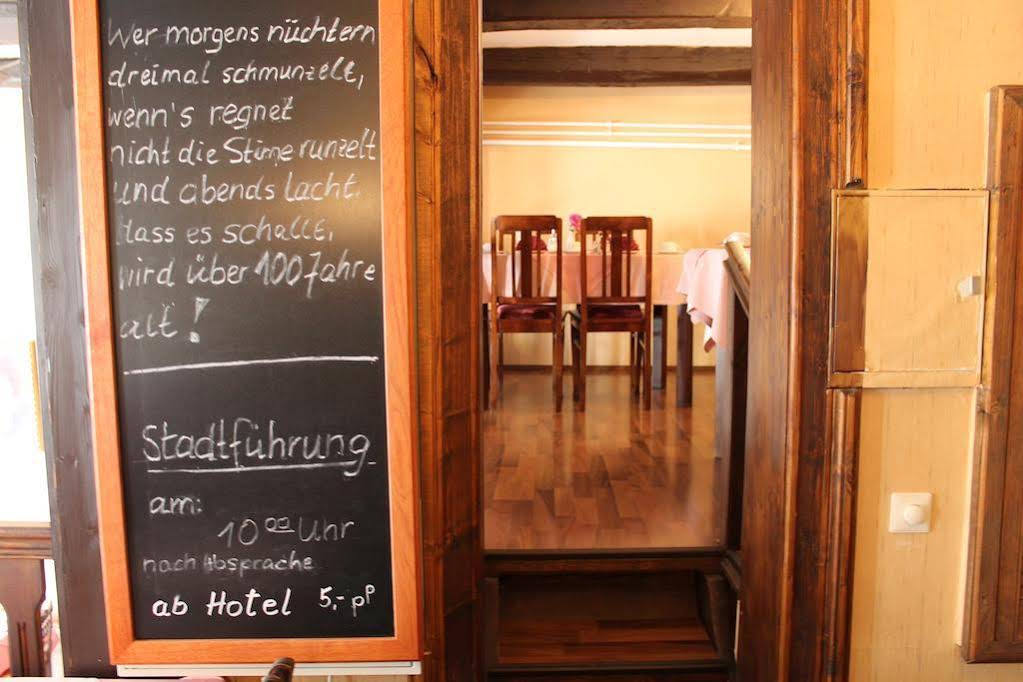 Wer morgens nüchtern
dreimal schmunzelt,
wenn's regnet
nicht die Stirne runzelt
und abends lacht.
dass es schallt,
wird über 100 Jahre
alt!
Stadtführung
am:
10⁰⁰ Uhr
nach Absprache
ab Hotel 5,- pP